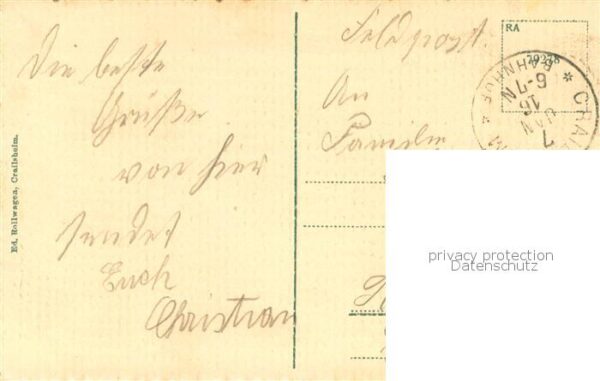 Die beste
Grüße
von hier
sendet
Euch
Christian
Ed. Rollwagen, Crailsheim.
Feldpost.
An
Familie
RA
29278
CRAIL
7
JAN
16
6-7 N
BAHNHOF
privacy protection
Datenschutz